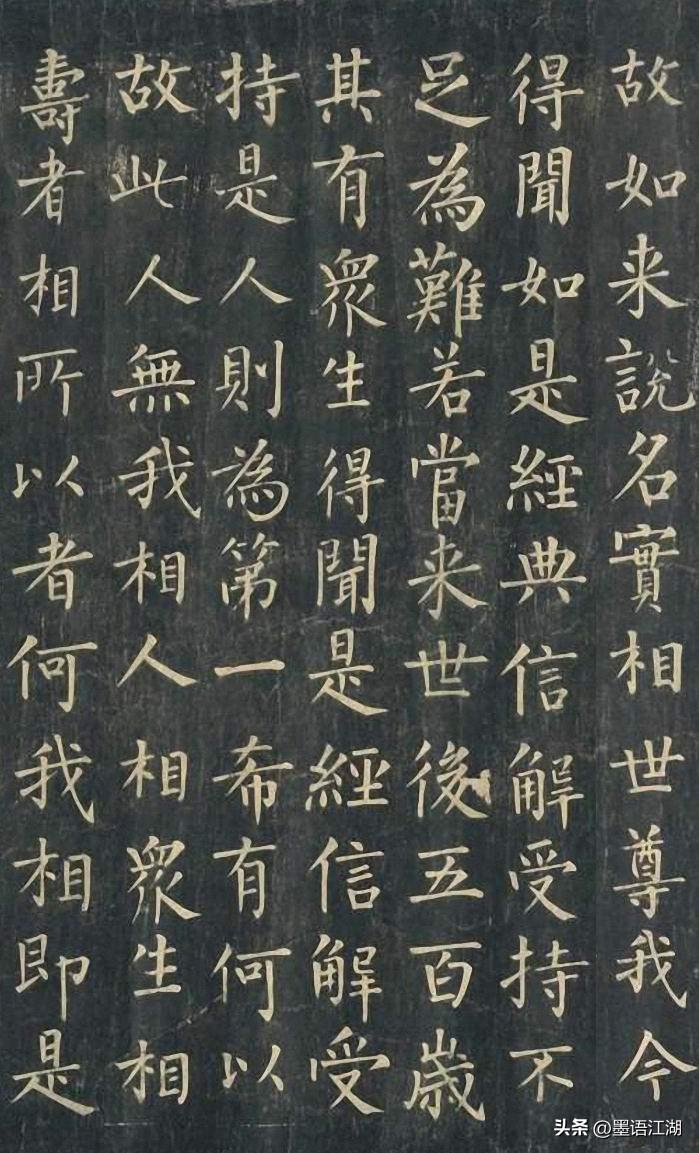 故如来說名實相世尊我今
得聞如是經典信解受持不
足為難若當来世後五百歲
其有衆生得聞是經信解受
持是人則為第一希有何以
故此人無我相人相衆生相
壽者相所以者何我相即是
头条 @墨语江湖